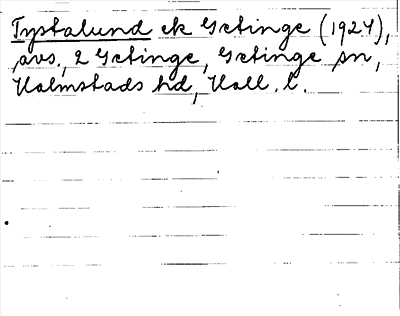 Tystalund ek Getinge (1924),
avs., 2 Getinge, Getinge sn,
Halmstads hd, Hall. l.